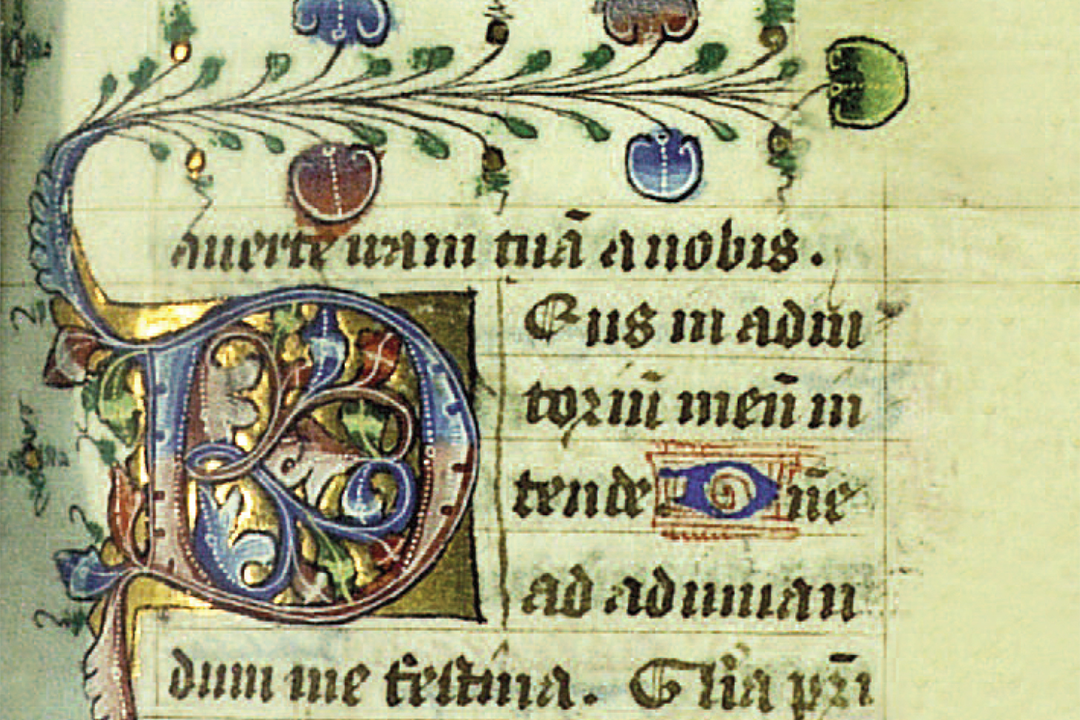 auerte iram tuã a nobis.
Deus in adiu
toriũ meũ in
tende Dñe
ad adiuuan
dum me festina. Glia pri